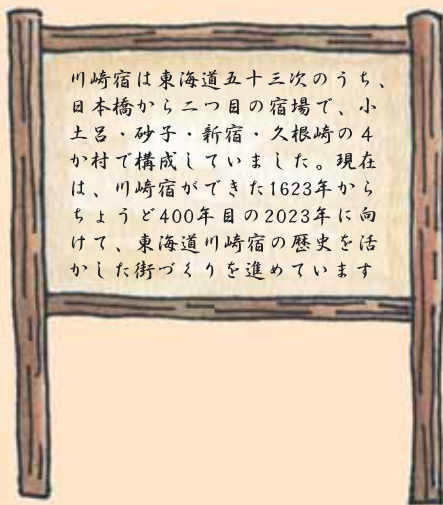 川崎宿は東海道五十三次のうち、
日本橋から二つ目の宿場で、小
土呂・砂子・新宿・久根崎の4
か村で構成していました。現在
は、川崎宿ができた1623年から
ちょうど400年目の2023年に向
けて、東海道川崎宿の歴史を活
かした街づくりを進めています